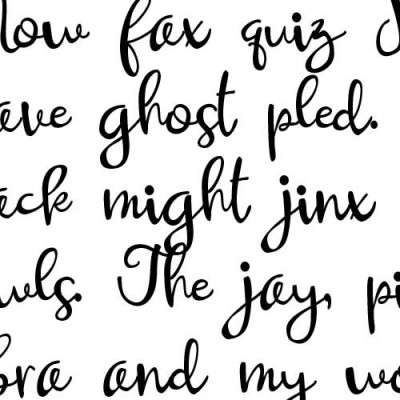 low fox quiz
ave ghost pled.
ack might jinx
wls. The jay, pi
bra and my wo